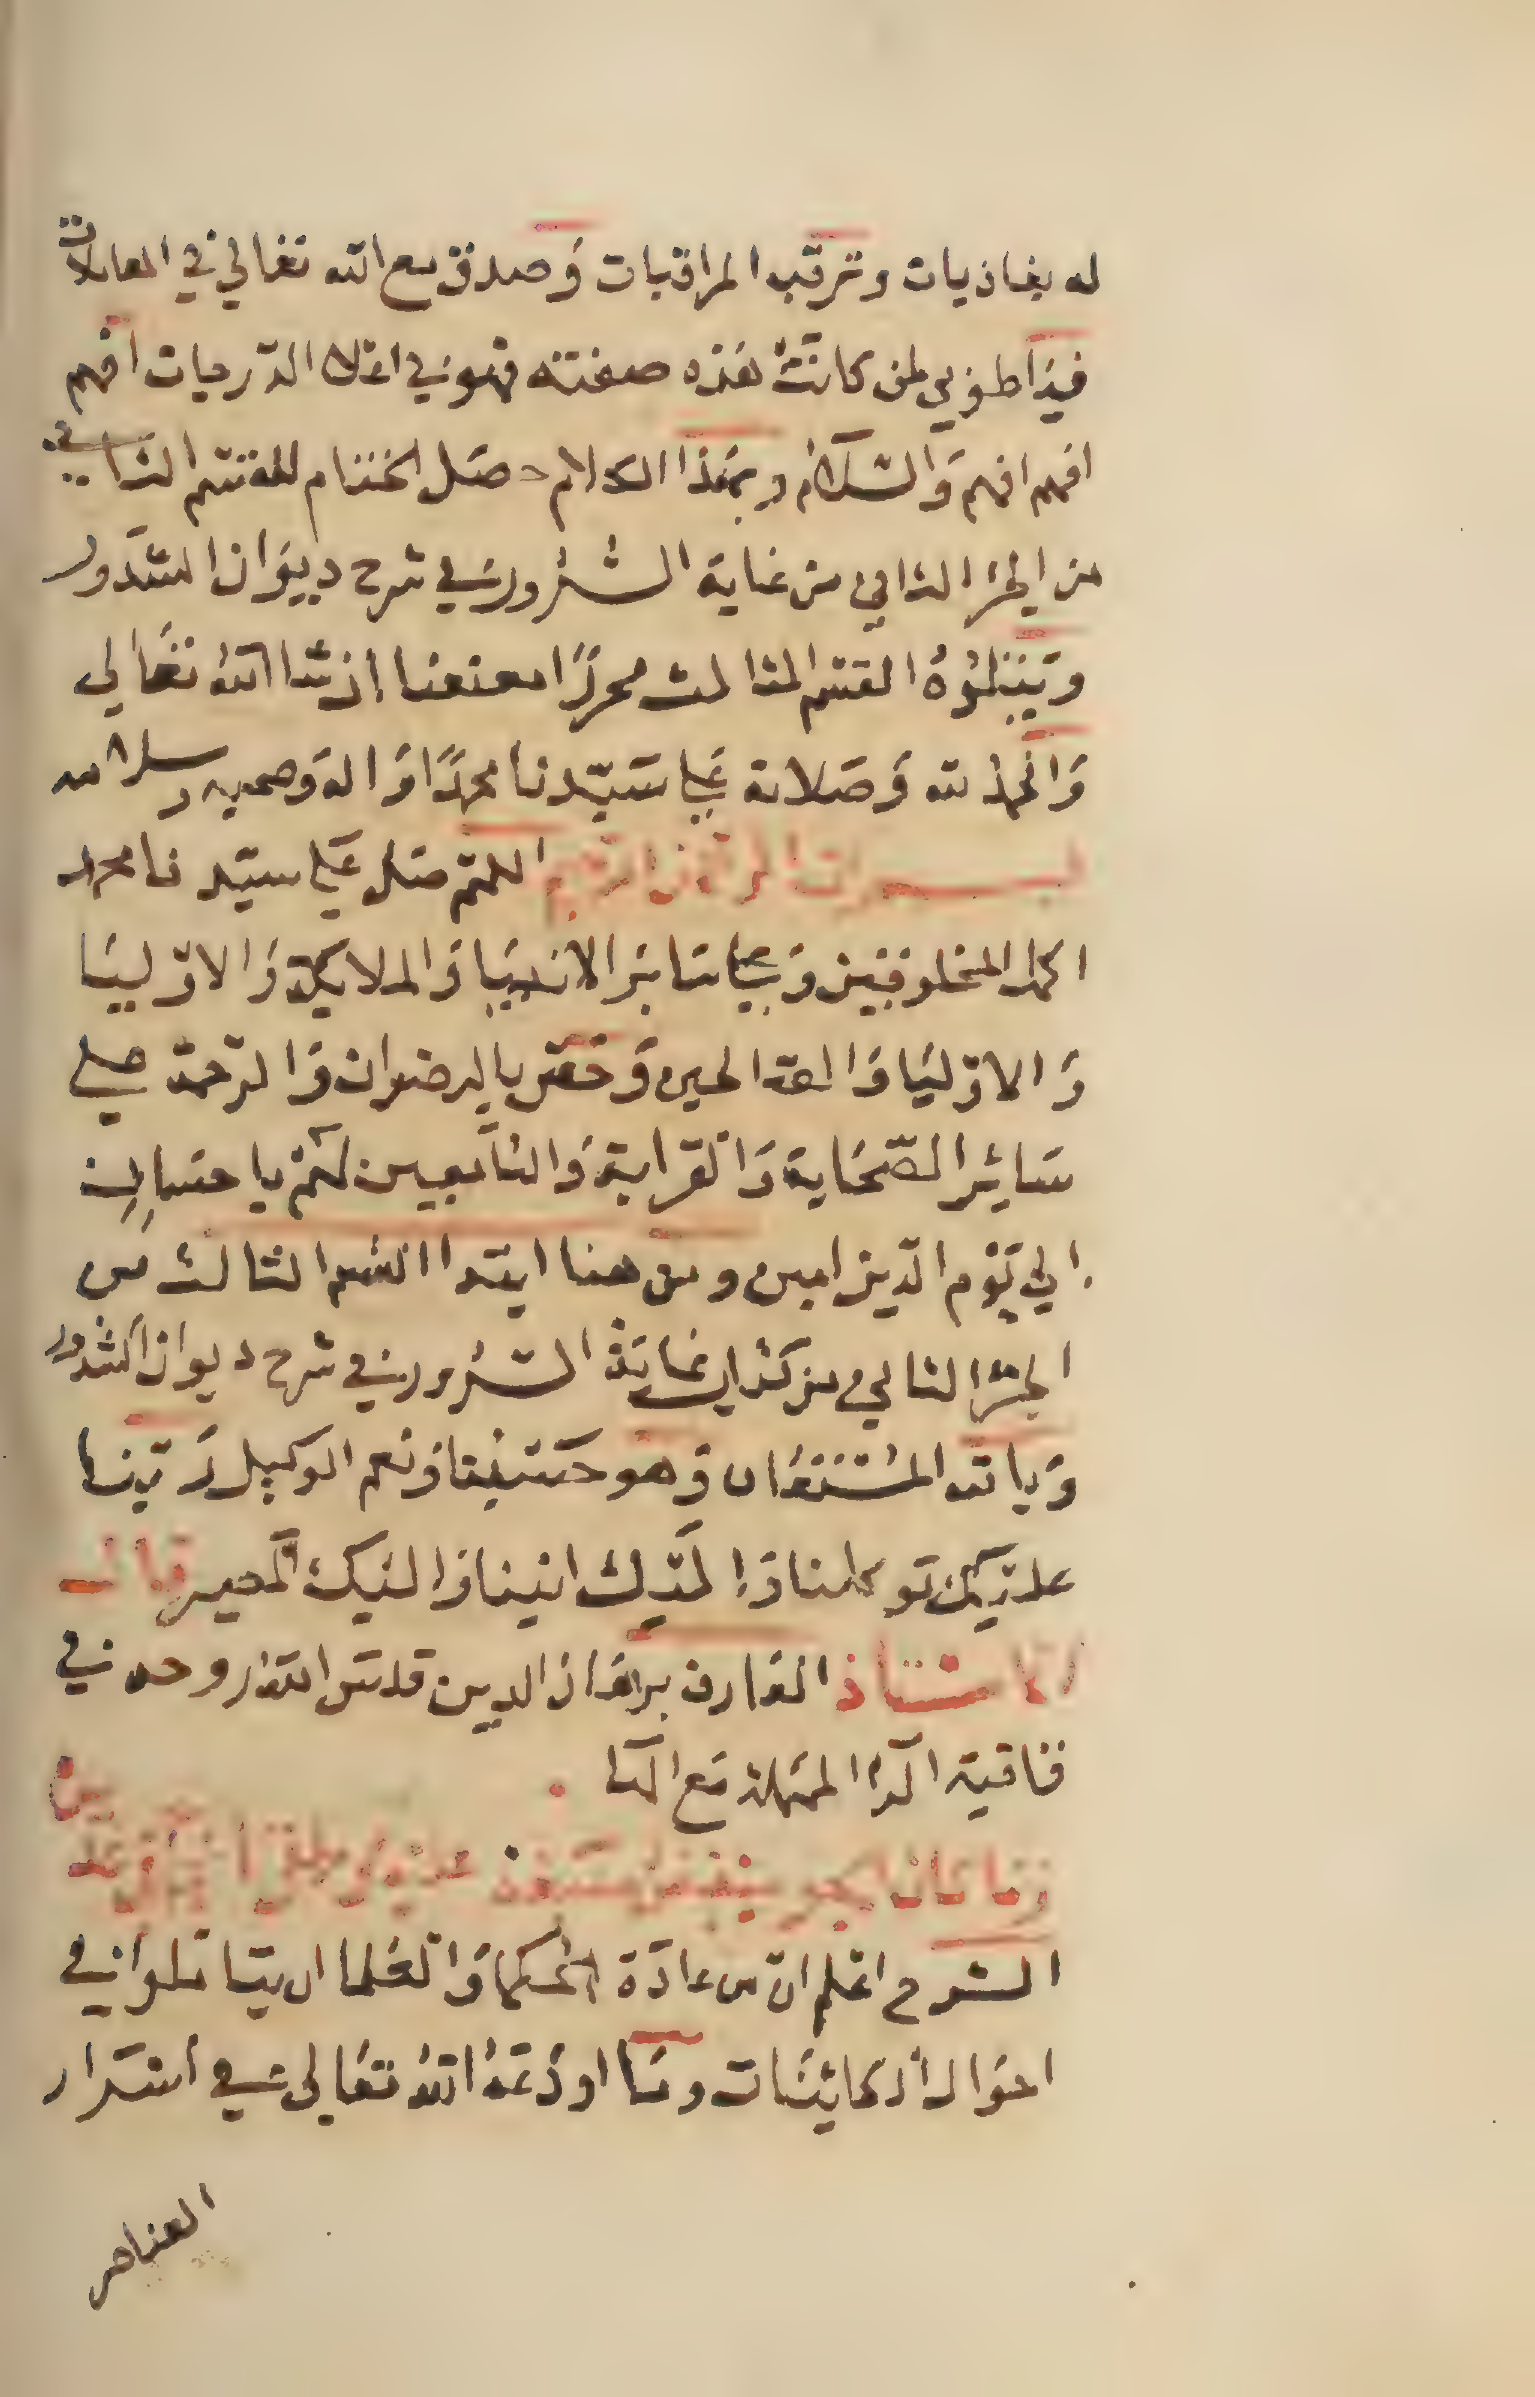 له بغاذيات وترقب المراقبات وَصدق مع الله تعالي في المعاملات
فيَا طوبي لمن كانتْ هَذه صفته فهو في اعلا الدّرجات افهم
افهم افهم وَالسّلام وبهَذا الكلام حصَل الختام للقسم الثاني
من الجزء الثاني من غاية السّرُور في شرح ديوَان الشذور
وَيَتلوُهُ القسم الثالث محررًا معنعنا ان شا اللهُ تعَالي
وَالحمد لله وَصَلاته عَلي سَيّدنا محمدًا وَاله وَصحبه وسلامه
بسم الله الرحمن الرحيم اللهمّ صَل عَلي سيّدنا محمد
اكمل المخلوقين وَعلي سَاير الانبيَا وَالملايكة وَالاوّليَا
وَالاوّليَا وَالصّالحين وَخصّ بالرضوان وَالرّحمة علي
سَائِر الصّحَابة وَالقرابة وَالتابعين لهُمْ باحسَان
الي يَوْم الدّين امين ومن هنا ابتدا القسم الثالث من
الجزء الثاني من كتاب غاية السّرُور في شرح ديوان الشذور
وَبالله المُسْتعَان وَهو حَسْبنا وَنعم الوكيل رَبّنا
عليَك توكلنا وَاليَك انبنا وَاليَك المصير قال
الاستاذ العَارف برهَان الدين قدسَ اللهُ روحه في
قافية الرا المهملة مَع الها
الشرح اعلم انّ من عادَة الحُكما وَالعُلما ان يتاملوا في
احوَال الكائِنَات ومَا اودَعَهُ اللهُ تعَالى في اسَرار
العناصر